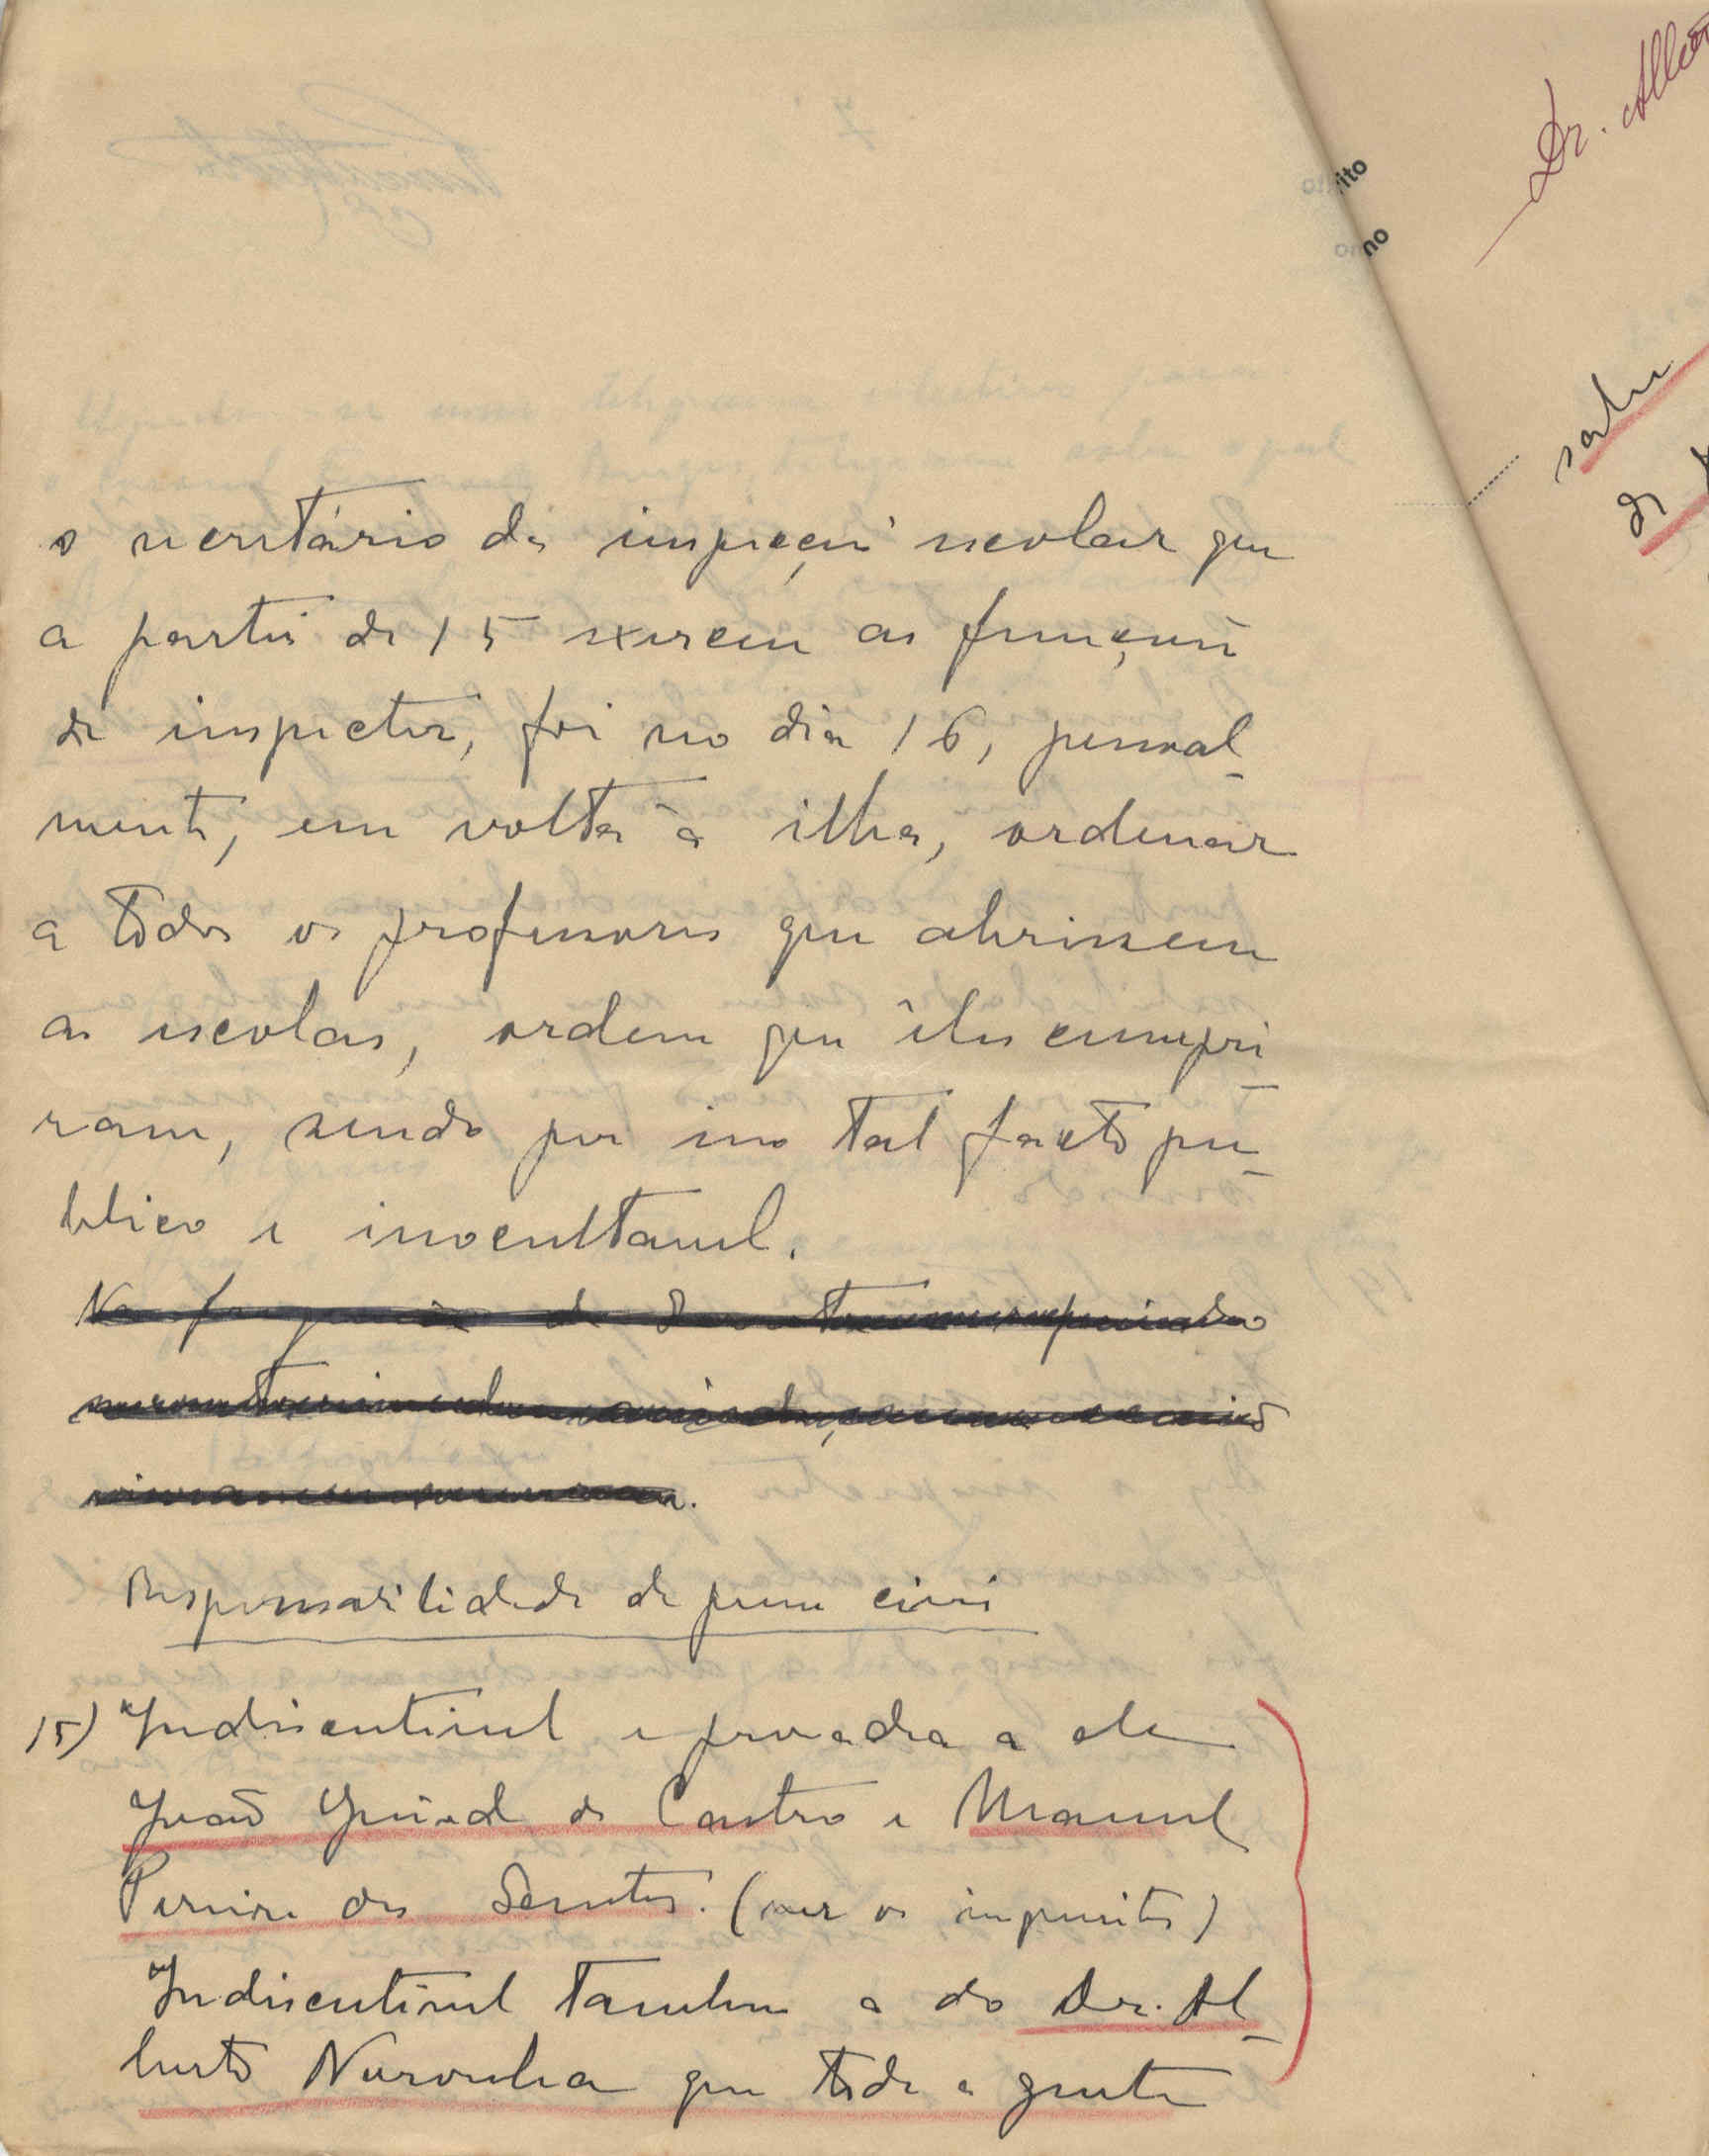 o secretário da inspeção escolar que
a partir de 15 exerceu as funções
de inspector, foi no dia 16, pessoal-
mente, em volta à ilha, ordenar
a todos os professores que abrissem
as escolas, ordem que êles cumpri-
ram, sendo por isso tal facto pu-
blico e inocultavel.
Responsabilidade de pessoas civis
15) Indiscutivel e provada a de
João de Castro e Manuel
Pereira dos Santos. (ver os impressos)
Indiscutivel tambem a do Dr. Al-
berto Noronha que toda a gente
Dr.
sabe
de